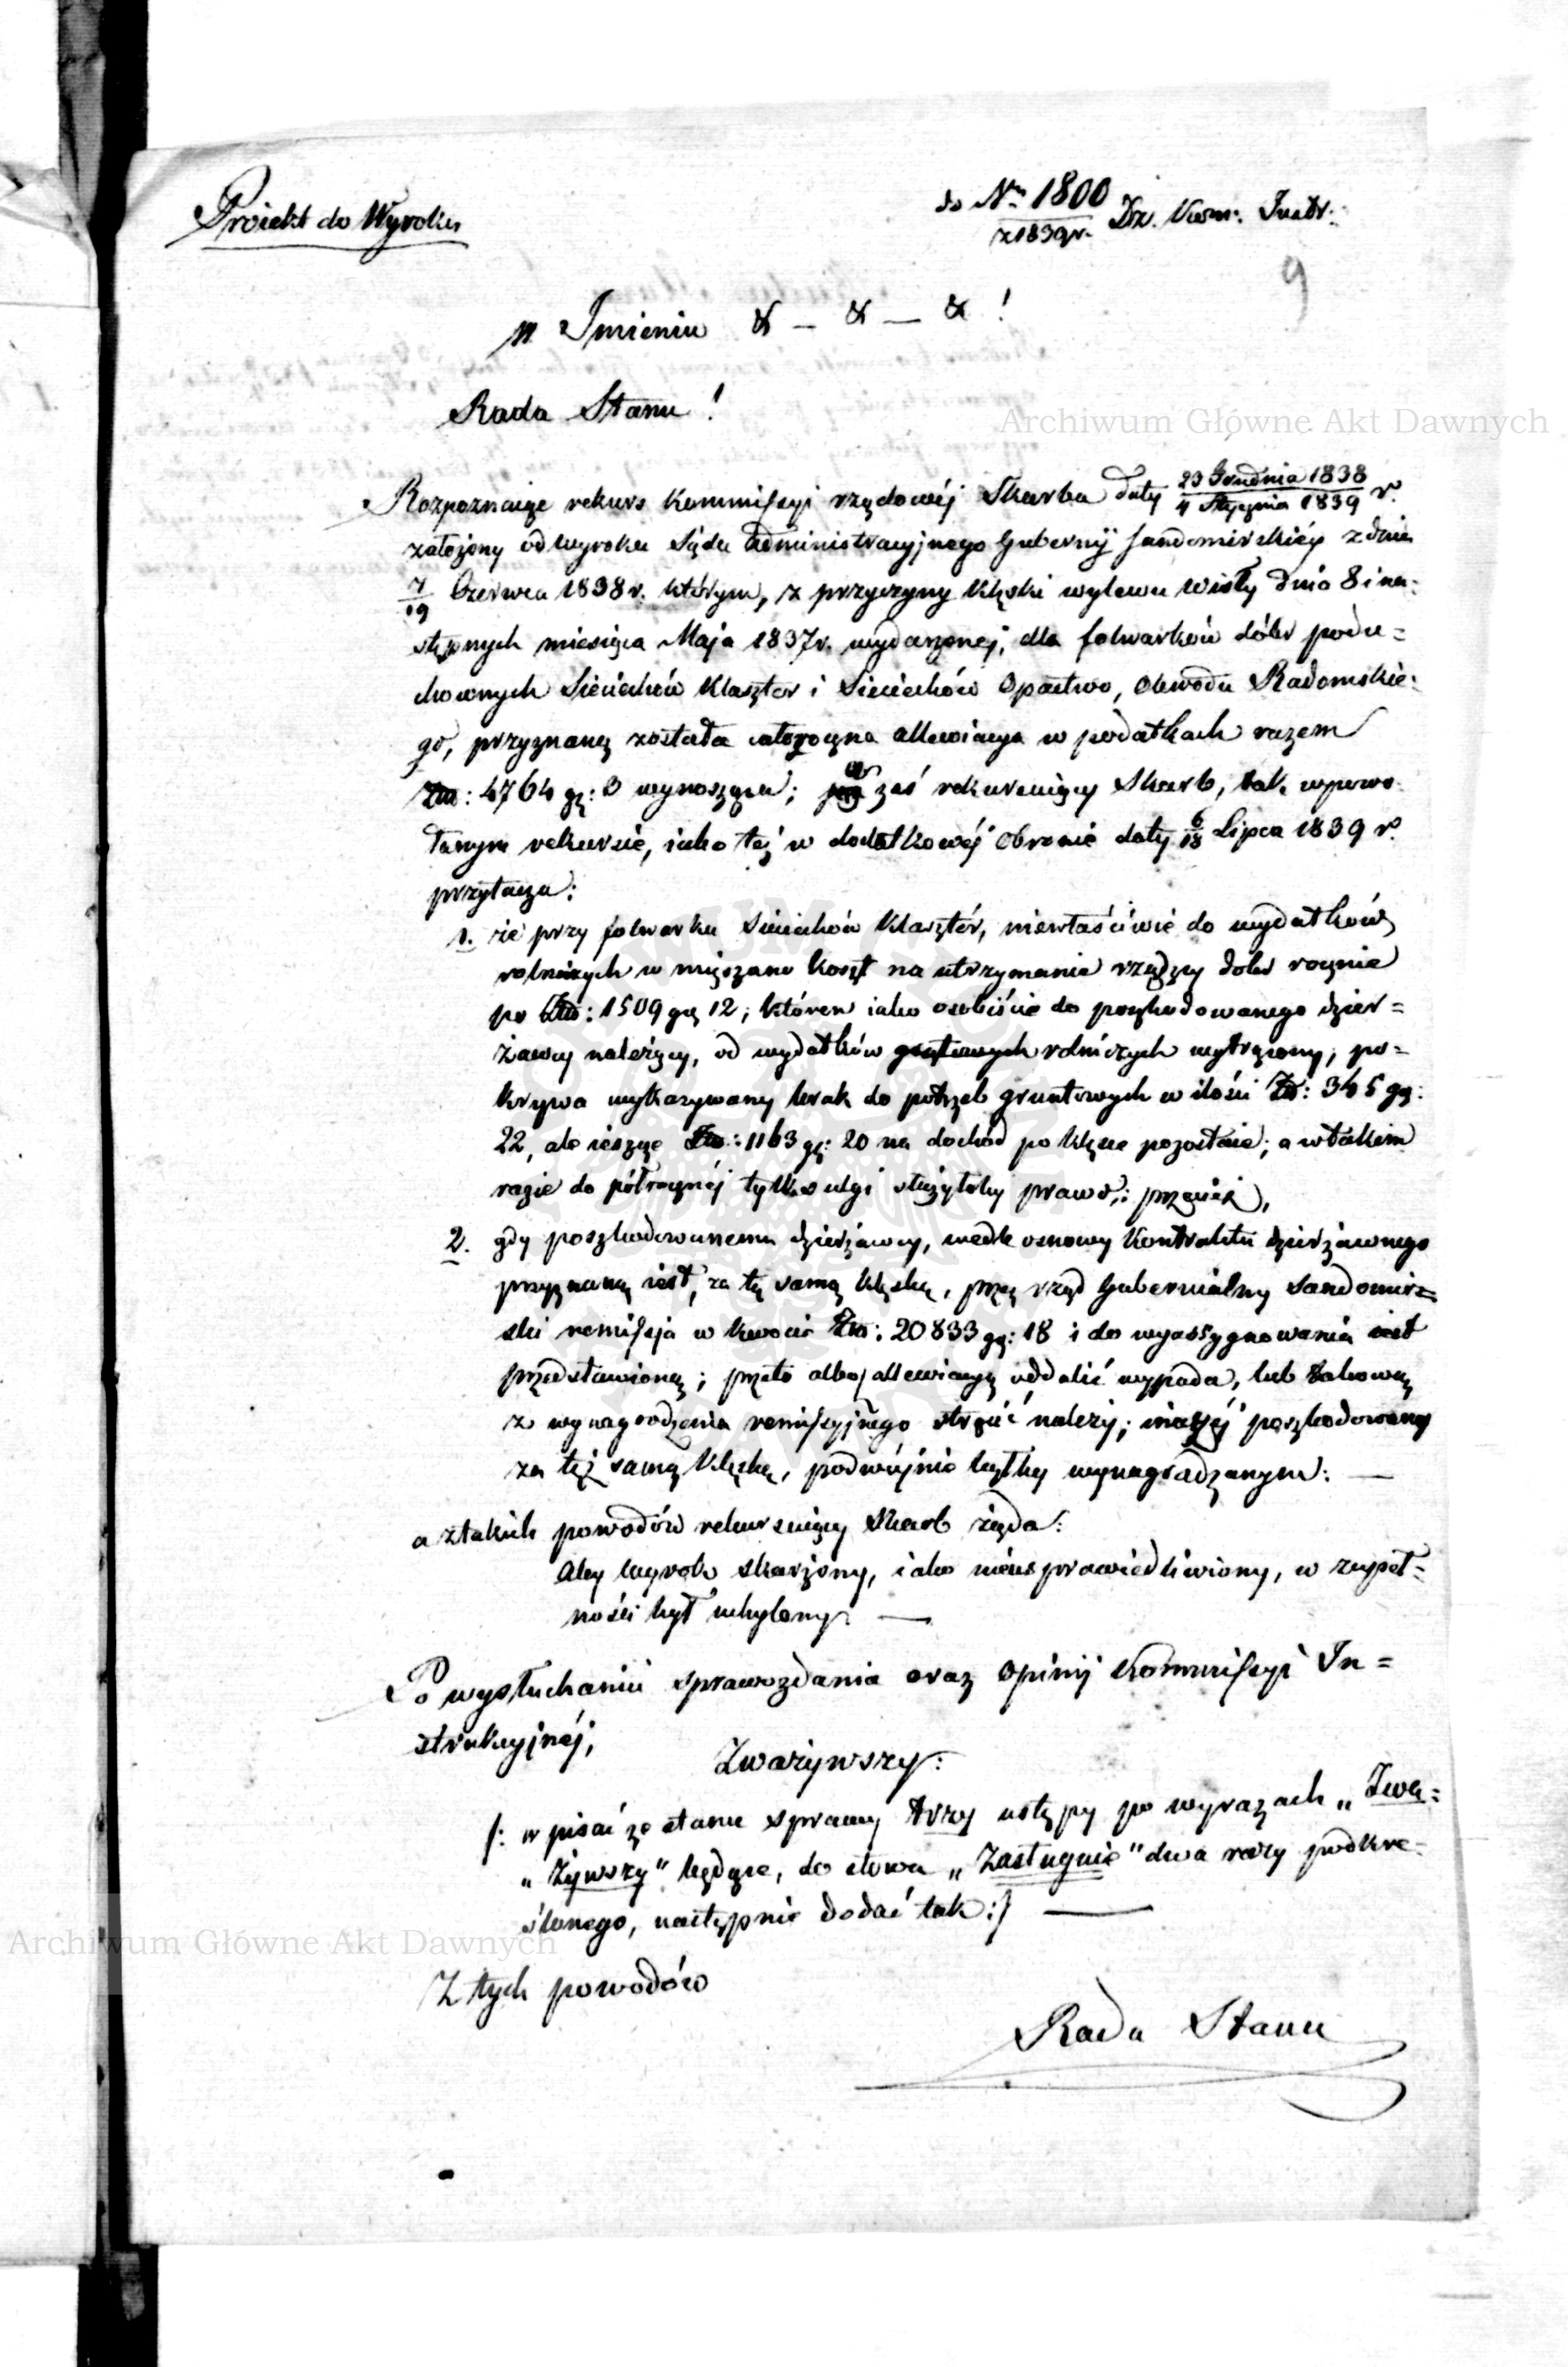 Proiekt do Wyroku
do Nru 1800 Dz. Kom. Instr:
z 1839 r.
9
w Imieniu & — & — & !
Rada Stanu !
Archiwum Główne Akt Dawnych
Rozpoznaiąc rekurs Kommissyi rządowéj Skarbu daty 23 Grudnia 1838 / 4 Stycznia 1839 r.
założony od wyroku Sądu Administracyjnego Gubernij Sandomirskiéy z dnia
7/19 Czerwca 1838 r. którym, z przyczyny klęski wylewu Wisły dnia 8 i na=
stępnych miesiąca Maja 1837 r. wydarzonej, dla folwarków dóbr podu=
chownych Sieciechów Klasztor i Sieciechów Opactwo, Obwodu Radomskie=
go, przyznaną została całoroczna allewiacya w podatkach razem
Złp: 4764 gr: 3 wynosząca; zaś rekuruiący Skarb, tak w powo=
łanym rekursie, iako téż w dodatkowéj obronie daty 6/18 Lipca 1839 r.
przytacza:
1. że przy folwarku Sieciechów Klasztór, niewłaściwie do wydatków
rolniczych wmięszano koszt na utrzymanie rządzcy dóbr rocznie
po Złp: 1509 gr 12, któren iako osobiście do poszkodowanego dzier=
żawcy należący, od wydatków gruntowych rolniczych wytrącony, po=
krywa wykazywany brak do potrzeb gruntowych w ilości Złp: 345 gr:
22, ale ieszcze Złp: 1163 gr: 20 na dochód po klęsce pozostaie; a w takim
razie do półrocznéj tylko ulgi służyłoby prawo; przecież,
2. gdy poszkodowanemu dzierżawcy, wedle osnowy Kontraktu dzierżawnego
przyznaną iest, za tę samą klęskę, przez rząd Gubernialny Sandomir=
ski remissya w kwocie Złp: 20833 gr: 18 i do wyassygnowania iest
przedstawioną; przeto albo allewiacyą oddalić wypada, lub takową
z wynagrodzenia remissyjnego strącić należy; inaczéj poszkodowany
za też samą klęskę, podwójnie byłby wynagradzanym: —
a z takich powodów rekuruiący Skarb żąda:
Aby wyrok skarżony, iako nieusprawiedliwiony, w zupeł=
ności był uchylony. —
Po wysłuchaniu sprawozdania oraz Opinij Kommissyi In=
strukcyjnéj,
Zważywszy:
/: wpisać ze stanu sprawy trzy ustępy po wyrazach „Zwa=
„żywszy" będące, do słowa „Zasługuie" dwa razy podkre=
ślonego, następnie dodać tak :/ —
Archiwum Główne Akt Dawnych
Z tych powodów
Rada Stanu